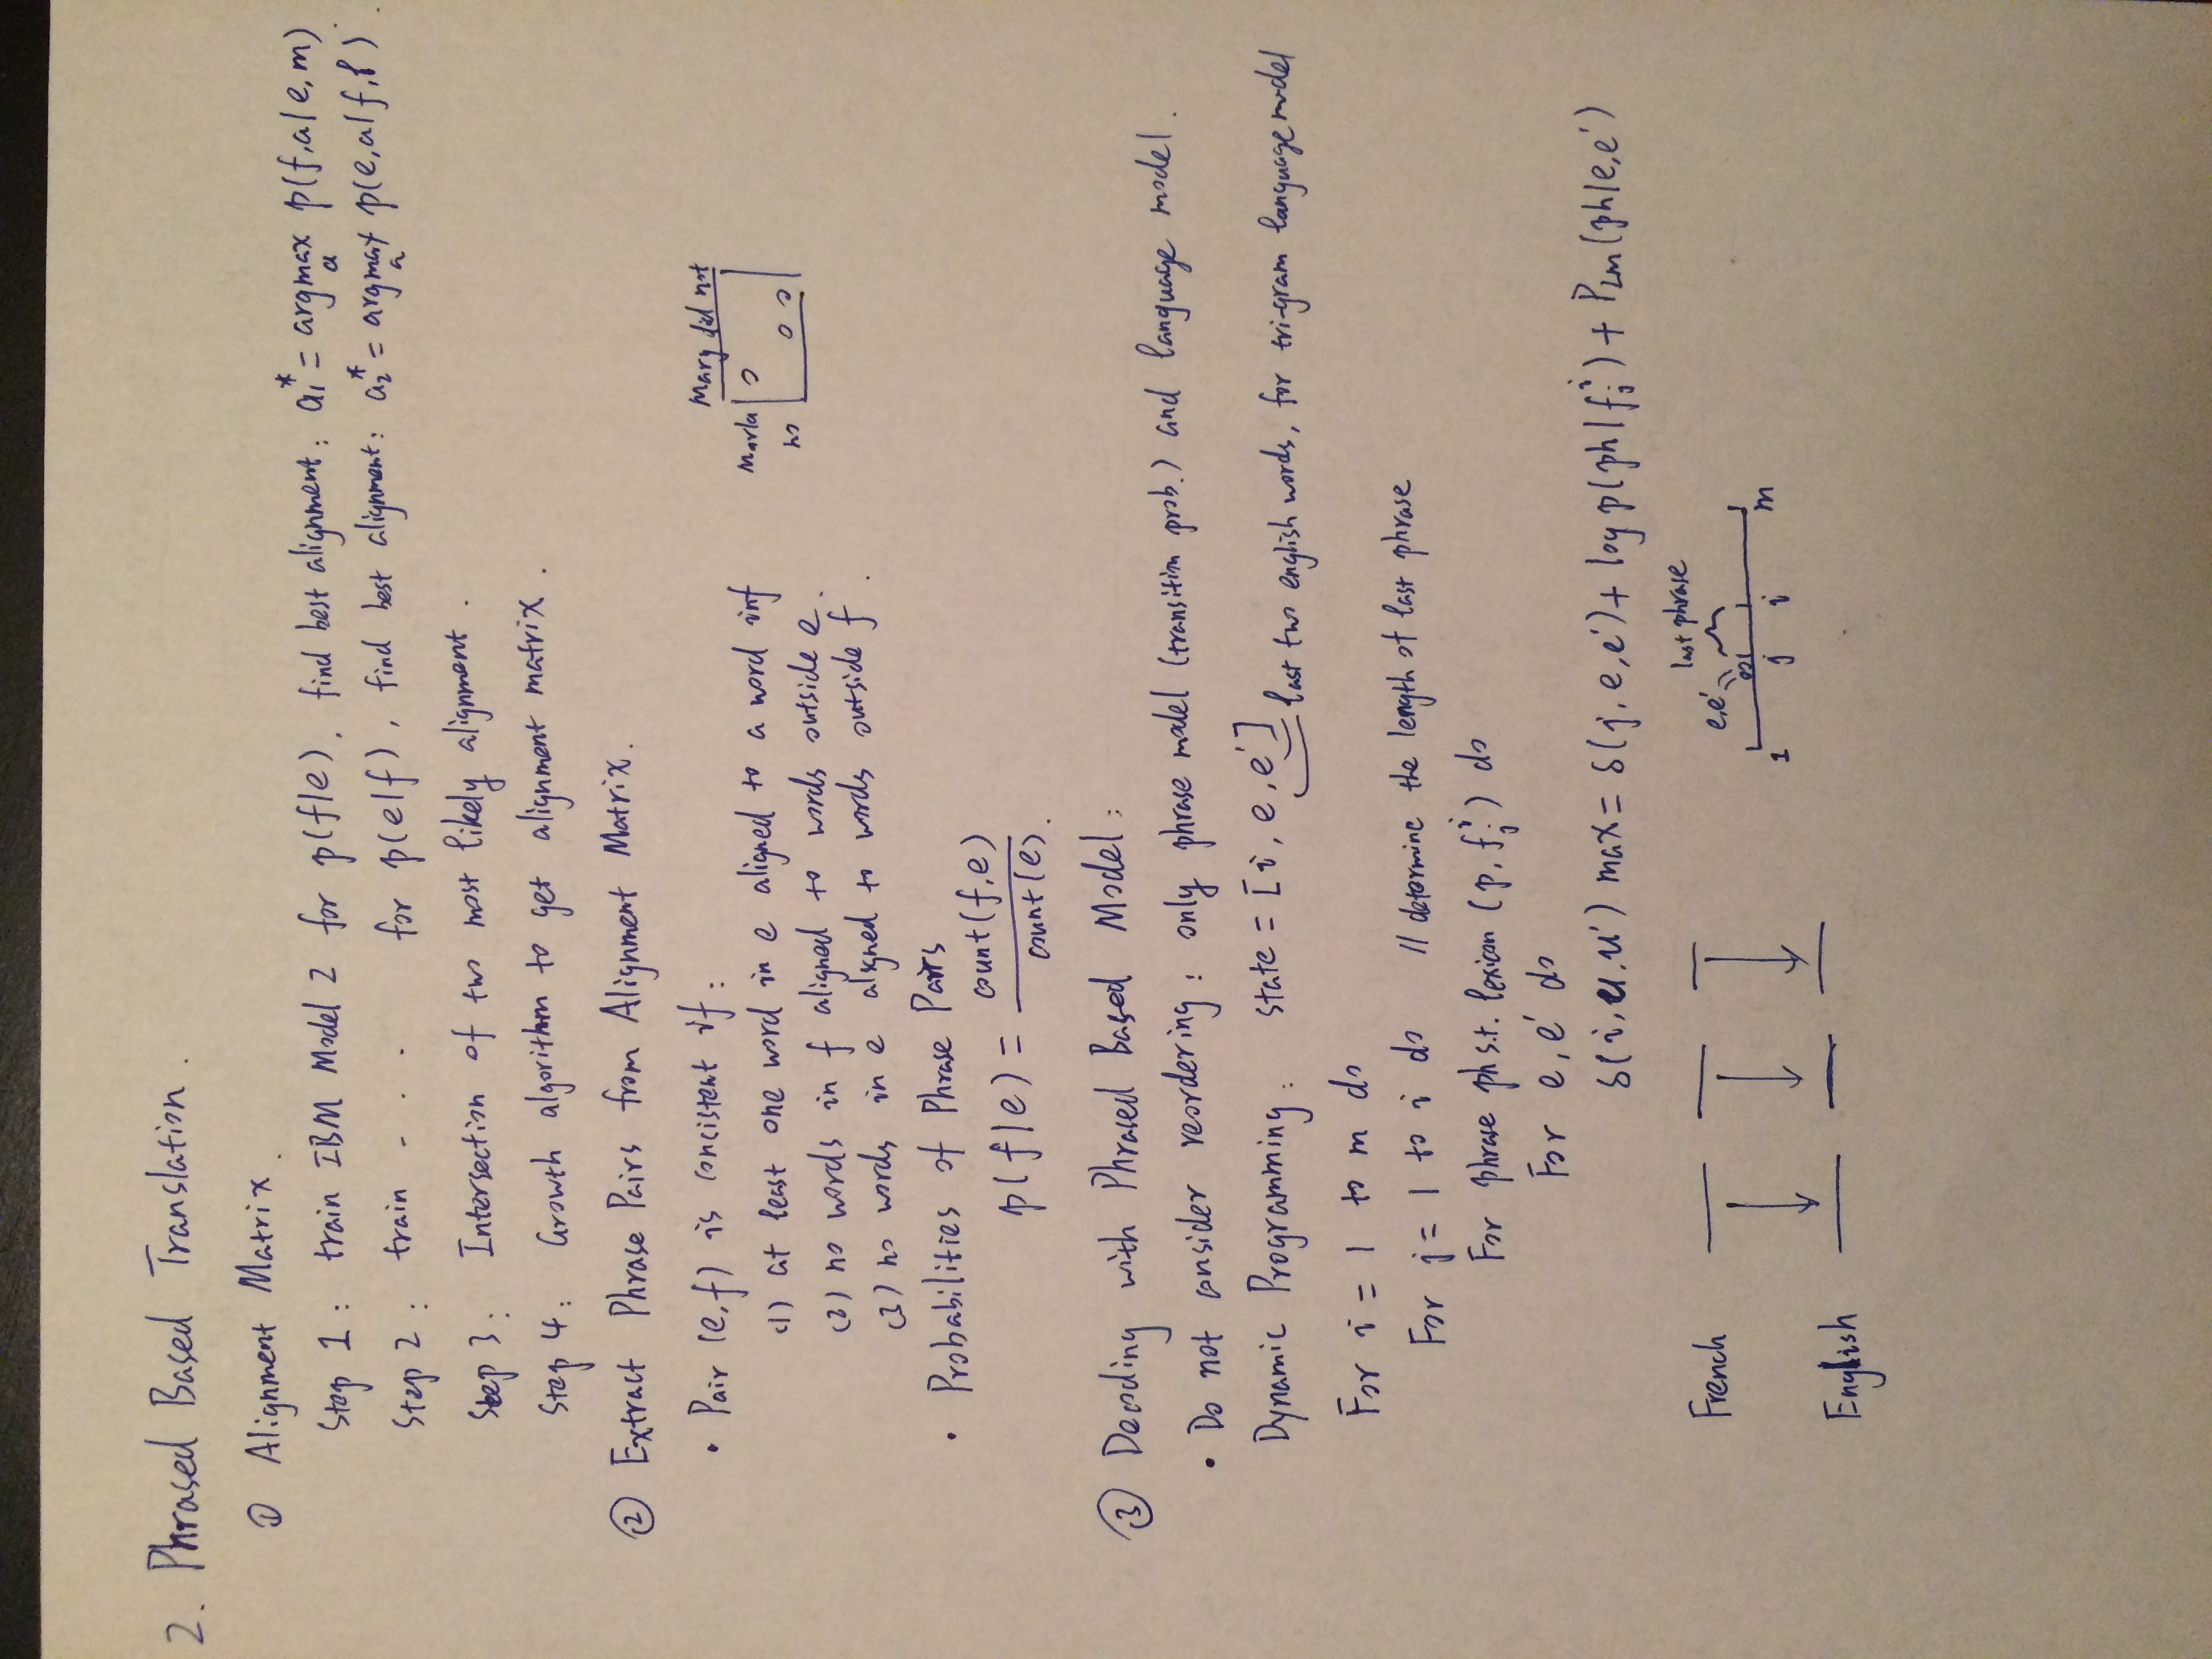 2. Phrased Based Translation.
① Alignment Matrix.
Step 1: train IBM Model 2 for p(f|e), find best alignment: a₁* = argmax_a p(f,a|e,m)
Step 2: train - . . for p(e|f), find best alignment: a₂* = argmax_a p(e,a|f,l).
Step 3: Intersection of two most likely alignment.
Step 4: Growth algorithm to get alignment matrix.
② Extract Phrase Pairs from Alignment Matrix.
• Pair (e,f) is concistent if:
(1) at least one word in e aligned to a word in f
(2) no words in f aligned to words outside e.
(3) no words in e aligned to words outside f.
Mary did not
Maria
no
• Probabilities of Phrase Pairs
p(f|e) = count(f,e) / count(e).
③ Decoding with Phrased Based Model:
• Do not consider reordering: only phrase model (transition prob.) and language model.
Dynamic Programming: state = [i, e, e'] last two english words, for tri-gram language model
For i = 1 to m do
For j = 1 to i do // determine the length of last phrase
For phrase ph s.t. lexicon (p, f_j^i) do
For e, e' do
δ(i,u,u') max= δ(j,e,e') + log p(ph|f_j^i) + P_LM(ph|e,e')
French
English
last phrase
e,e'
1 j i m